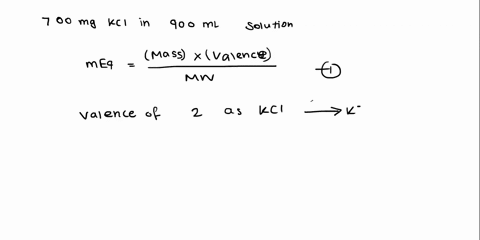 700 mg KCl in 900 mL Solution
mEq = (Mass) x (Valence) / MW — ①
Valence of 2 as KCl → K